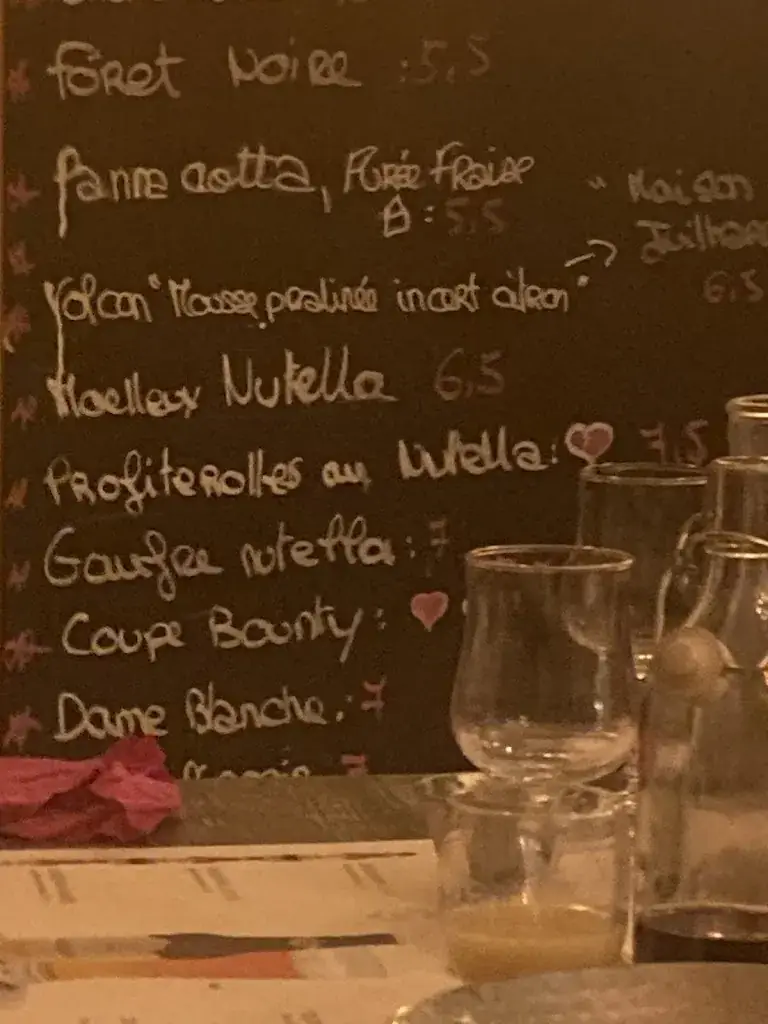 Forêt Noire : 5,5
Panna cotta, Purée Fraise
: 5,5
"Maison
Volcan "Mousse pralinée incert citron"
6,5
Moelleux Nutella 6,5
Profiterolles au Nutella: 7,5
Gaufre nutella: 7
Coupe Bounty:
Dame Blanche: 7